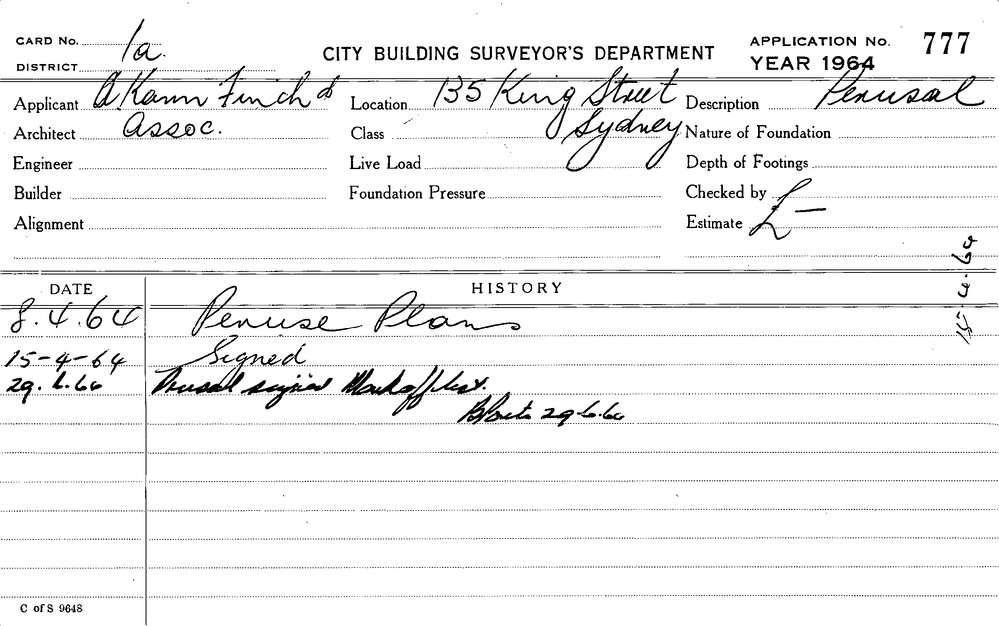 CARD No. 1a. CITY BUILDING SURVEYOR'S DEPARTMENT APPLICATION No. 777
DISTRICT YEAR 1964
Applicant A Kann Finch & Location 135 King Street Description Perusal
Architect Assoc. Class Sydney Nature of Foundation
Engineer Live Load Depth of Footings
Builder Foundation Pressure Checked by
Alignment Estimate £ —
DATE HISTORY
8.4.64 Peruse Plans
15-4-64 Signed
29.6.66 Perusal signed Mark off list.
29.6.66
C of S 9648